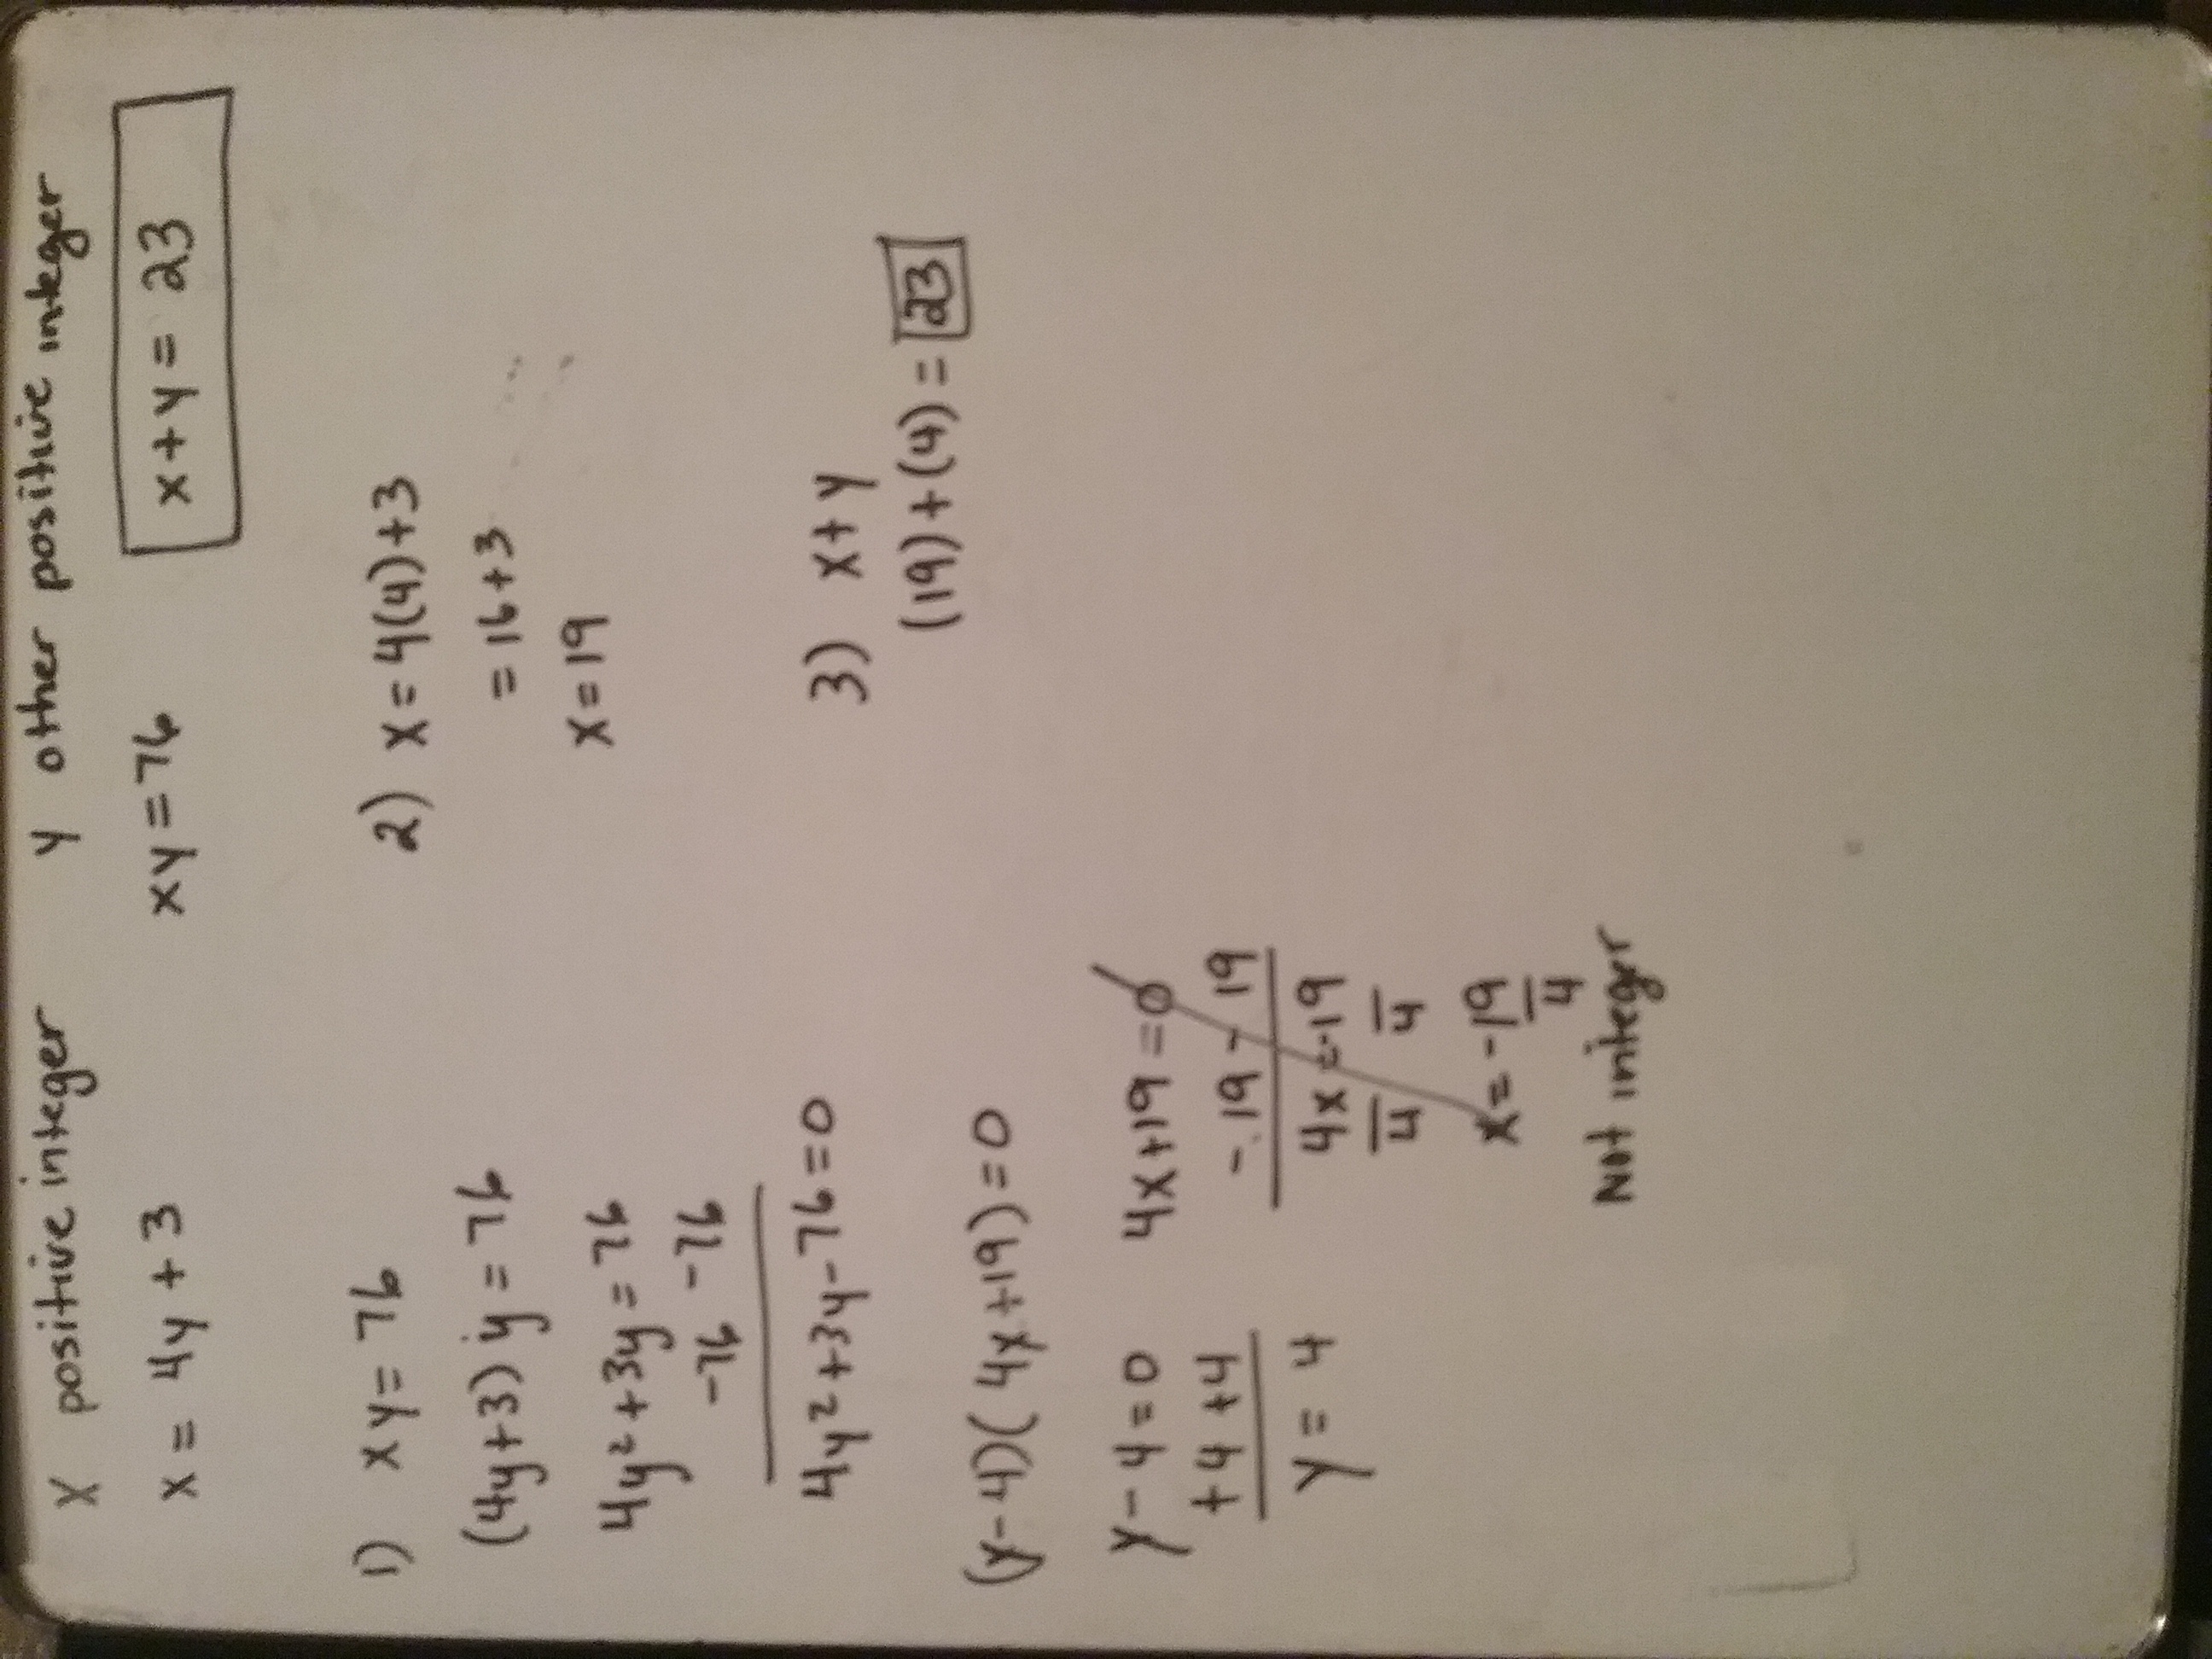 x positive integer y other positive integer
x = 4y + 3 xy = 76 x + y = 23
1) xy = 76
(4y+3)y = 76
4y²+3y = 76
-76 -76
4y²+3y-76=0
(y-4)(4x+19)=0
y-4=0
+4 +4
y = 4
4x+19=0
-19 - 19
4x=-19
4 4
x=-19
4
Not integer
2) x=4(4)+3
= 16+3
x=19
3) x+y
(19)+(4)=23